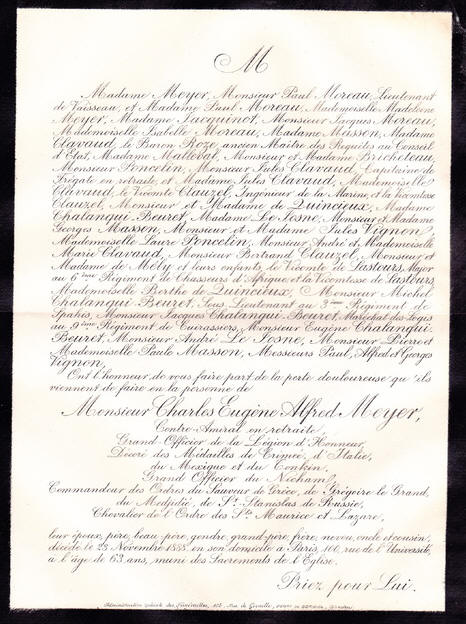 M
Madame Meyer, Monsieur Paul Moreau, Lieutenant
de Vaisseau, et Madame Paul Moreau, Mademoiselle Madeleine
Meyer, Madame Jacquinot, Monsieur Jacques Moreau,
Mademoiselle Isabelle Moreau, Madame Masson, Madame
Clavaud, le Baron Roze, ancien Maître des Requêtes au Conseil
d'Etat, Madame Malleval, Monsieur et Madame Bricheteau,
Monsieur Poncelin, Monsieur Jules Clavaud, Capitaine de
Frégate en retraite, et Madame Jules Clavaud, Mademoiselle
Clavaud, le Vicomte Clauzel, Ingénieur de la Marine, et la Vicomtesse
Clauzel, Monsieur et Madame de Quincieux, Madame
Chalanqui-Beuret, Madame Le Josne, Monsieur et Madame
Georges Masson, Monsieur et Madame Jules Vignon,
Mademoiselle Laure Poncelin, Monsieur André et Mademoiselle
Marie Clavaud, Monsieur Bertrand Clauzel, Monsieur et
Madame de Mély et leurs enfants, le Vicomte de Lastours, Major
au 6ème Régiment de Chasseurs d'Afrique et la Vicomtesse de Lastours
Mademoiselle Berthe de Quincieux, Monsieur Michel
Chalanqui-Beuret, Sous-Lieutenant au Régiment de
Spahis, Monsieur Jacques Chalanqui-Beuret, Maréchal des Logis
au 9ème Régiment de Cuirassiers, Monsieur Eugène Chalanqui-
Beuret, Monsieur André Le Josne, Monsieur Pierre et
Mademoiselle Paule Masson, Messieurs Paul, Alfred et Georges
Vignon,
Ont l'honneur de vous faire part de la perte douloureuse qu'ils
viennent de faire en la personne de
Monsieur Charles Eugène Alfred Meyer,
Contre-Amiral en retraite,
Grand-Officier de la Légion d'Honneur,
Décoré des Médailles de Crimée, d'Italie,
du Mexique et du Tonkin,
Grand Officier du Nicham,
Commandeur des Ordres du Sauveur de Grèce, de St Grégoire le Grand,
du Medjidié, de St Stanislas de Russie,
Chevalier de l'Ordre des Sts Maurice et Lazare,
leur époux, père, beau-père, gendre, grand-père, frère, neveu, oncle et cousin,
décédé le 23 Novembre 1885, en son domicile à Paris, 100, rue de l'Université,
à l'âge de 63 ans, muni des Sacrements de l'Eglise.
Priez pour Lui.
Administration spéciale des Funérailles, Rue de Grenelle